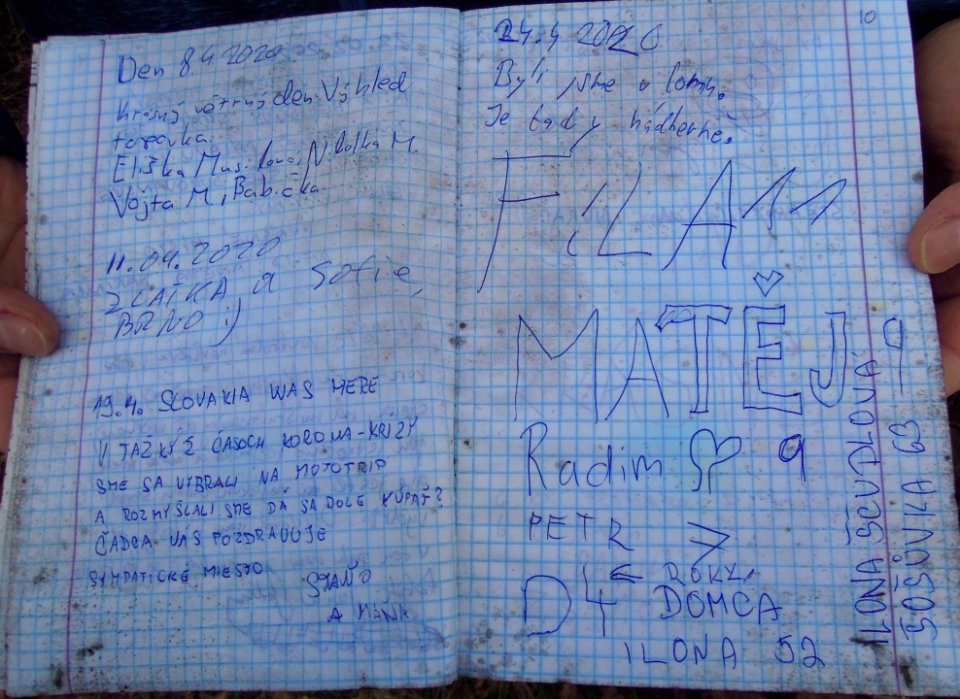 Den 8.4.2020
Krásný větrný den. Výhled
Eliška Musilová, Nikolka M.
Vojta M, Babička
11.04.2020
ZLATKA a Sofie,
BRNO :)
19.4. SLOVAKIA WAS HERE
V ŤAŽKÝZ ČASOCH KORONA-KRÍZY
SME SA VYBRALI NA MOTOTRIP
A ROZMÝŠĽALI SME DÁ SA DOLE KÚPAŤ?
ČADCA VÁS POZDRAVUJE
SYMPATICKÉ MIESTO
STAŇO
A MAŇA
10
24.4 2020
Byli jsme u lomu.
Je tady nádherně.
FILA 11
MATĚJ 9
Radim 9
PETR
4 ROKY.
DOMČA
ILONA 52
ILONA ŠČUDLOVÁ
ŠOŠŮVKA 63